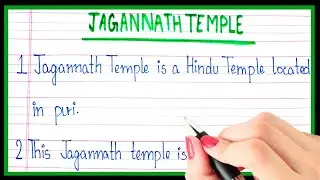 JAGANNATH TEMPLE
1 Jagannath Temple is a Hindu Temple located
in puri.
2 This Jagannath temple is